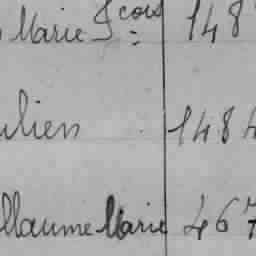 Marie Fcois 148
ulien 1484
illaume Marie 467